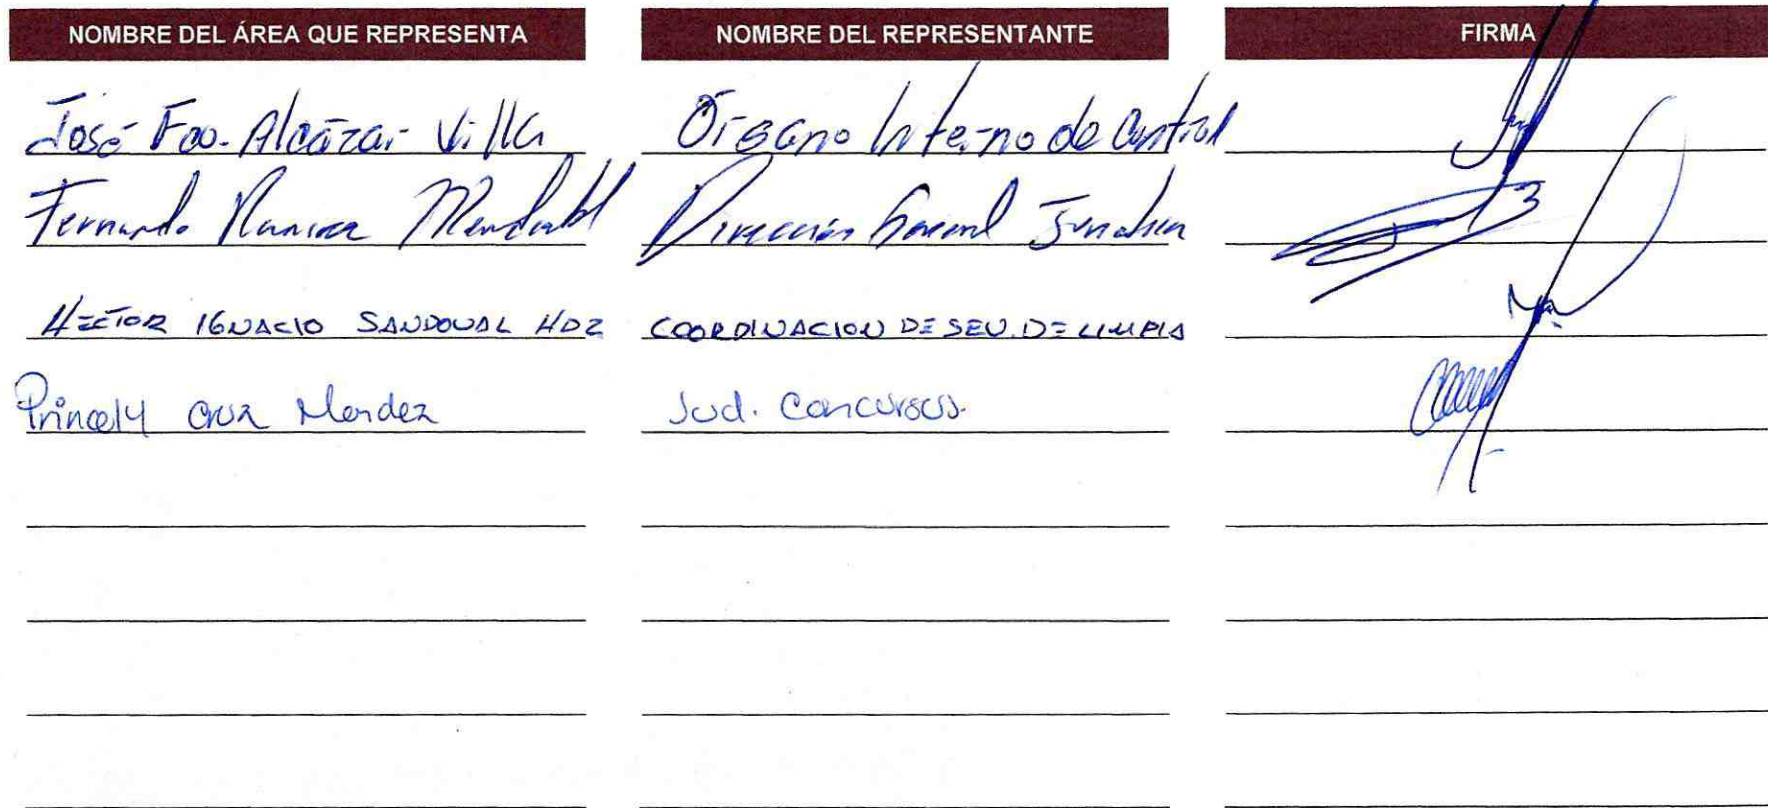 NOMBRE DEL ÁREA QUE REPRESENTA NOMBRE DEL REPRESENTANTE FIRMA
José Fco. Alcázar Villa Órgano Interno de Control
Fernando Dirección General
HÉCTOR IGNACIO SANDOVAL HDZ COORDINACION DE SEV. DE LIMPIA
Princely Cruz Mendez Jud. Concursos.